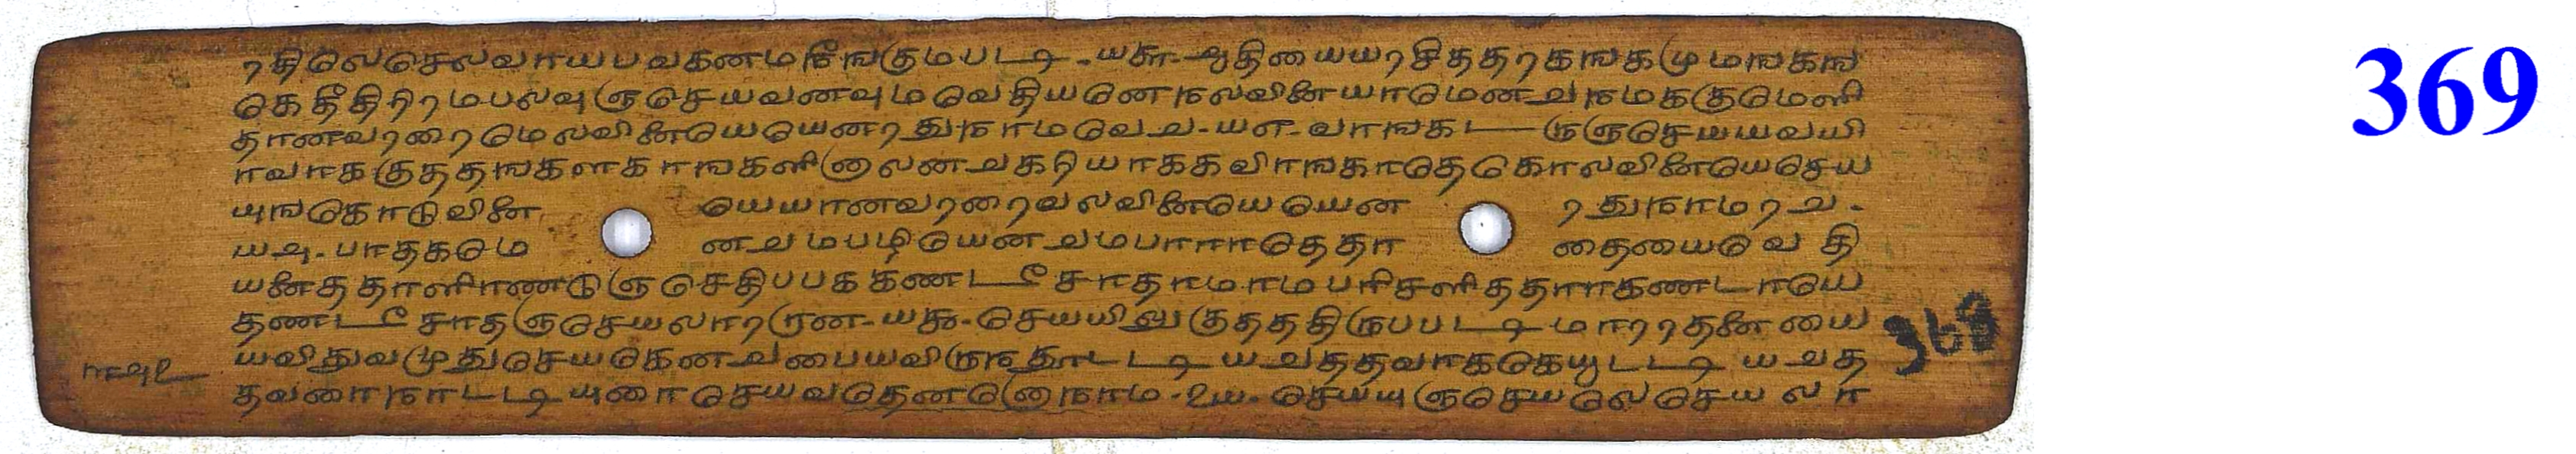 ரதிலெசெலவாயபவகனமநீஙகுமபடடி - யசு - ஆதியையரசிததரகஙகமுமஙகங
கெதீதிரிரமபலவுஞசெயவனவுமவெதியனெநலவினையாமெனவநமககுமெளி
தானவரரைமெலவினையெயெனரதுநாமவெவ - யஎ - வாஙகடருஞசெயயவயி
ாவாககுததஙகளகாஙகளினூலனவகரியாகக விாஙகாதெகொலவினையெசெய
யுஙகொடுவினை யெயானவரரைவலவினையெயென ரதுநாமரவ -
யஅ - பாதகமெ னவமபழியெனவமபாராதெதா தையைவெ தி
யனைததாளிரணடுஞ செதிபபககணடீசாதாமாமபரிசளிததாரகணடாயெ
தணடீசாதஞசெயலாரரூன - யகூ - செயயிலுகுதததிருபபடடி மாரரதனை யை
யவிதுவமுதுசெயகெனவபையவிருநதூடடி யவததவாகெகயுடடி யவத
தவனாநாடடி யுரைசெயவதெனனெநாம - உய - செயயுஞசெயலெசெய லா
ாசஅஉ
368
369